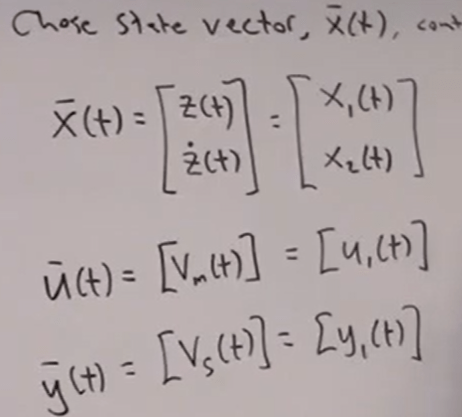 Chose state vector, x̄(t), cont
x̄(t) = [z(t) ż(t)] = [x₁(t) x₂(t)]
ū(t) = [Vₘ(t)] = [u₁(t)]
ȳ(t) = [Vₛ(t)] = [y₁(t)]